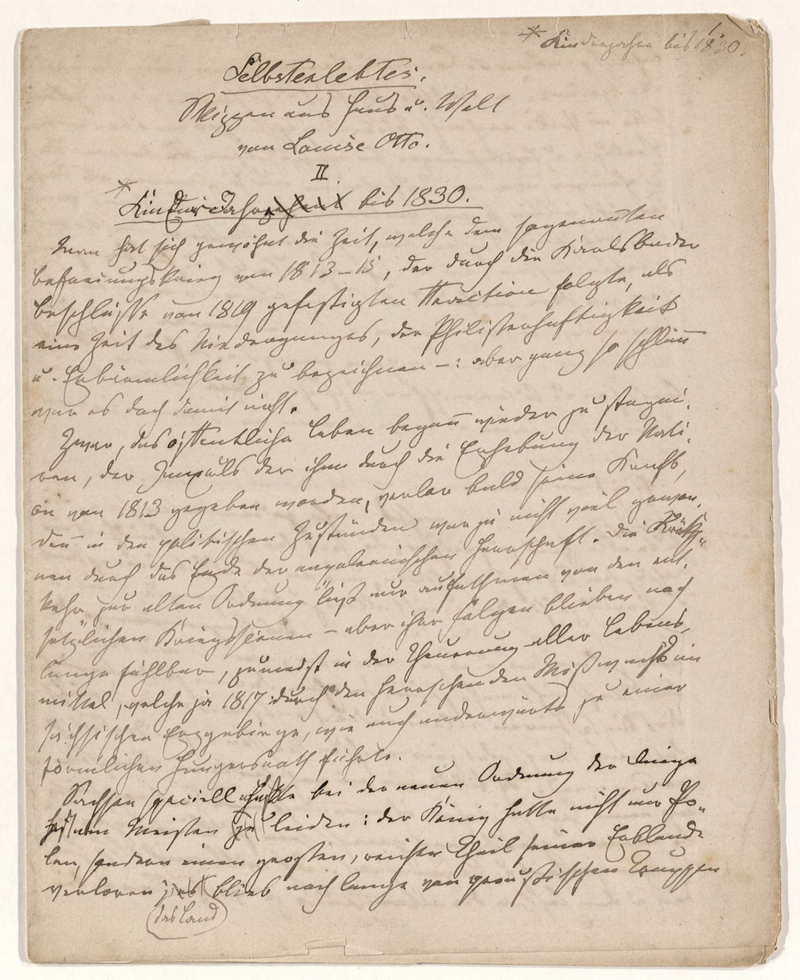 * Kinderjahre bis 1830.
Selbsterlebtes.
Skizzen aus Haus u. Welt
von Louise Otto.
II
* Kinderjahre bis 1830.
Man hat sich gewöhnt die Zeit, welche dem sogenannten
Befreiungskrieg von 1813–15, der durch die Karlsbader
Beschlüsse von 1819 gefestigten Reaction folgte, als
eine Zeit des Niederganges, der Philisterhaftigkeit
u. Erbärmlichkeit zu bezeichnen –: aber ganz so schlimm
war es doch damit nicht.
Zwar, das öffentliche Leben begann wieder zu stagni-
ren, der Impuls der ihm durch die Erhebung der Nati-
on von 1813 gegeben worden, verlor bald seine Kraft,
denn in den politischen Zuständen war ja nicht viel gewon-
nen durch das Ende der napoleonischen Herrschaft. Die Rück-
kehr zur alten Ordnung ließ nur aufathmen von den ent-
setzlichen Kriegsscenen – aber ihre Folgen blieben noch
lange fühlbar, zumeist in der Theuerung aller Lebens-
mittel, welche ja 1817 durch den herrschenden Mißwachs im
sächsischen Erzgebirge, wie auch anderwärts zu einer
förmlichen Hungersnoth führte.
Sachsen speciell hatte bei der neuen Ordnung der Dinge
am Meisten zu leiden: der König hatte nicht nur Po-
len, sondern einen großen, reichen Theil seiner Erblande
verloren blieb noch lange von preußischen Truppen
das Land